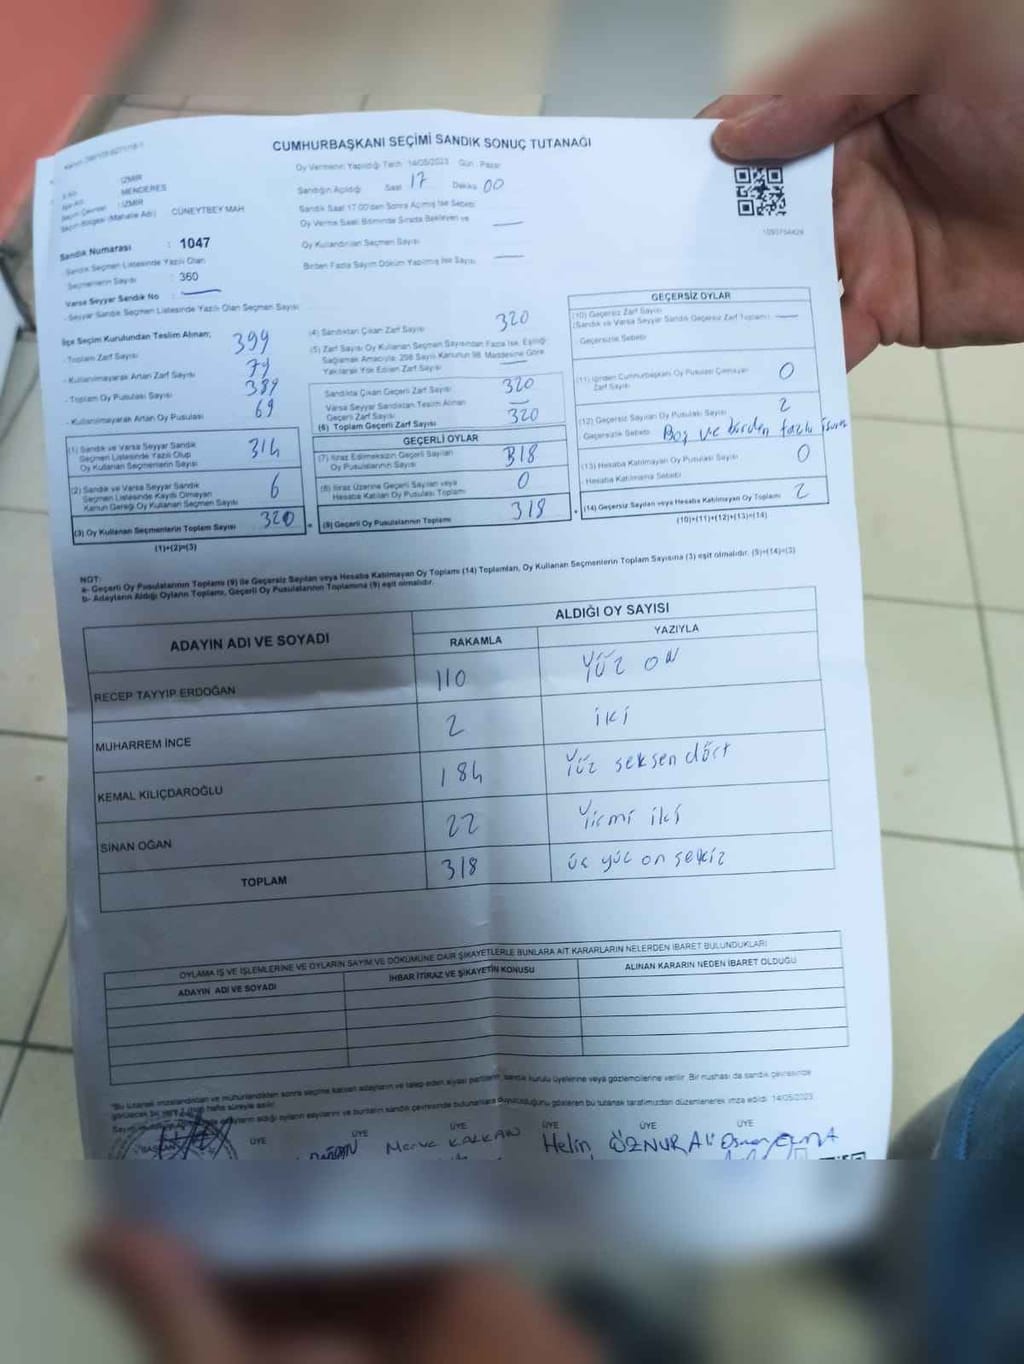 CUMHURBAŞKANI SEÇİMİ SANDIK SONUÇ TUTANAĞI
Oy Vermenin Yapıldığı Tarih : 14/05/2023 Gün : Pazar
İZMİR
MENDERES
Sandığın Açıldığı Saat 17 Dakika 00
Seçim Çevresi : İZMİR
Seçim Bölgesi (Mahalle Adı) : CÜNEYTBEY MAH
Sandık Saat 17.00'den Sonra Açılmış İse Sebebi
Oy Verme Saati Bitiminde Sırada Bekleyen ve
Oy Kullandırılan Seçmen Sayısı
Birden Fazla Sayım Döküm Yapılmış İse Sayısı
Sandık Numarası : 1047
Sandık Seçmen Listesinde Yazılı Olan
Seçmenlerin Sayısı : 360
Varsa Seyyar Sandık No :
- Seyyar Sandık Seçmen Listesinde Yazılı Olan Seçmen Sayısı
İlçe Seçim Kurulundan Teslim Alınan;
- Toplam Zarf Sayısı 399
- Kullanılmayarak Artan Zarf Sayısı 79
- Toplam Oy Pusulası Sayısı 389
- Kullanılmayarak Artan Oy Pusulası 69
(1) Sandık ve Varsa Seyyar Sandık
Seçmen Listesinde Yazılı Olup
Oy Kullanan Seçmenlerin Sayısı 314
(2) Sandık ve Varsa Seyyar Sandık
Seçmen Listesinde Kaydı Olmayan
Kanun Gereği Oy Kullanan Seçmen Sayısı 6
(3) Oy Kullanan Seçmenlerin Toplam Sayısı 320
(1)+(2)=(3)
(4) Sandıktan Çıkan Zarf Sayısı 320
(5) Zarf Sayısı Oy Kullanan Seçmen Sayısından Fazla İse, Eşitliği
Sağlamak Amacıyla, 298 Sayılı Kanunun 98. Maddesine Göre
Yakılarak Yok Edilen Zarf Sayısı
Sandıkta Çıkan Geçerli Zarf Sayısı 320
Varsa Seyyar Sandıktan Teslim Alınan
Geçerli Zarf Sayısı
(6) Toplam Geçerli Zarf Sayısı 320
GEÇERLİ OYLAR
(7) İtiraz Edilmeksizin Geçerli Sayılan
Oy Pusulalarının Sayısı 318
(8) İtiraz Üzerine Geçerli Sayılan veya
Hesaba Katılan Oy Pusulası Toplamı 0
(9) Geçerli Oy Pusulalarının Toplamı 318
GEÇERSİZ OYLAR
(10) Geçersiz Zarf Sayısı
(Sandık ve Varsa Seyyar Sandık Geçersiz Zarf Toplamı)
- Geçersizlik Sebebi
(11) İçinden Cumhurbaşkanı Oy Pusulası Çıkmayan
Zarf Sayısı 0
(12) Geçersiz Sayılan Oy Pusulası Sayısı 2
Geçersizlik Sebebi Boş ve birden fazla
(13) Hesaba Katılmayan Oy Pusulası Sayısı 0
- Hesaba Katılmama Sebebi
(14) Geçersiz Sayılan veya Hesaba Katılmayan Oy Toplamı 2
(10)+(11)+(12)+(13)=(14)
NOT:
a- Geçerli Oy Pusulalarının Toplamı (9) ile Geçersiz Sayılan veya Hesaba Katılmayan Oy Toplamı (14) Toplamları, Oy Kullanan Seçmenlerin Toplam Sayısına (3) eşit olmalıdır. (9)+(14)=(3)
b- Adayların Aldığı Oyların Toplamı, Geçerli Oy Pusulalarının Toplamına (9) eşit olmalıdır.
ADAYIN ADI VE SOYADI ALDIĞI OY SAYISI
RAKAMLA YAZIYLA
RECEP TAYYIP ERDOĞAN 110 Yüz on
MUHARREM İNCE 2 iki
KEMAL KILIÇDAROĞLU 184 Yüz seksen dört
SİNAN OĞAN 22 Yirmi iki
TOPLAM 318 üç yüz on sekiz
OYLAMA İŞ VE İŞLEMLERİNE VE OYLARIN SAYIM VE DÖKÜMÜNE DAİR ŞİKAYETLERLE BUNLARA AİT KARARLARIN NELERDEN İBARET BULUNDUKLARI
ADAYIN ADI VE SOYADI İHBAR İTİRAZ VE ŞİKAYETİN KONUSU ALINAN KARARIN NEDEN İBARET OLDUĞU
BAŞKAN ÜYE ÜYE ÜYE ÜYE ÜYE
Merve KALKAN Helin ÖZNUR